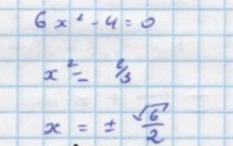 6x² - 4 = 0
x² = 2/3
x = ± √6/2